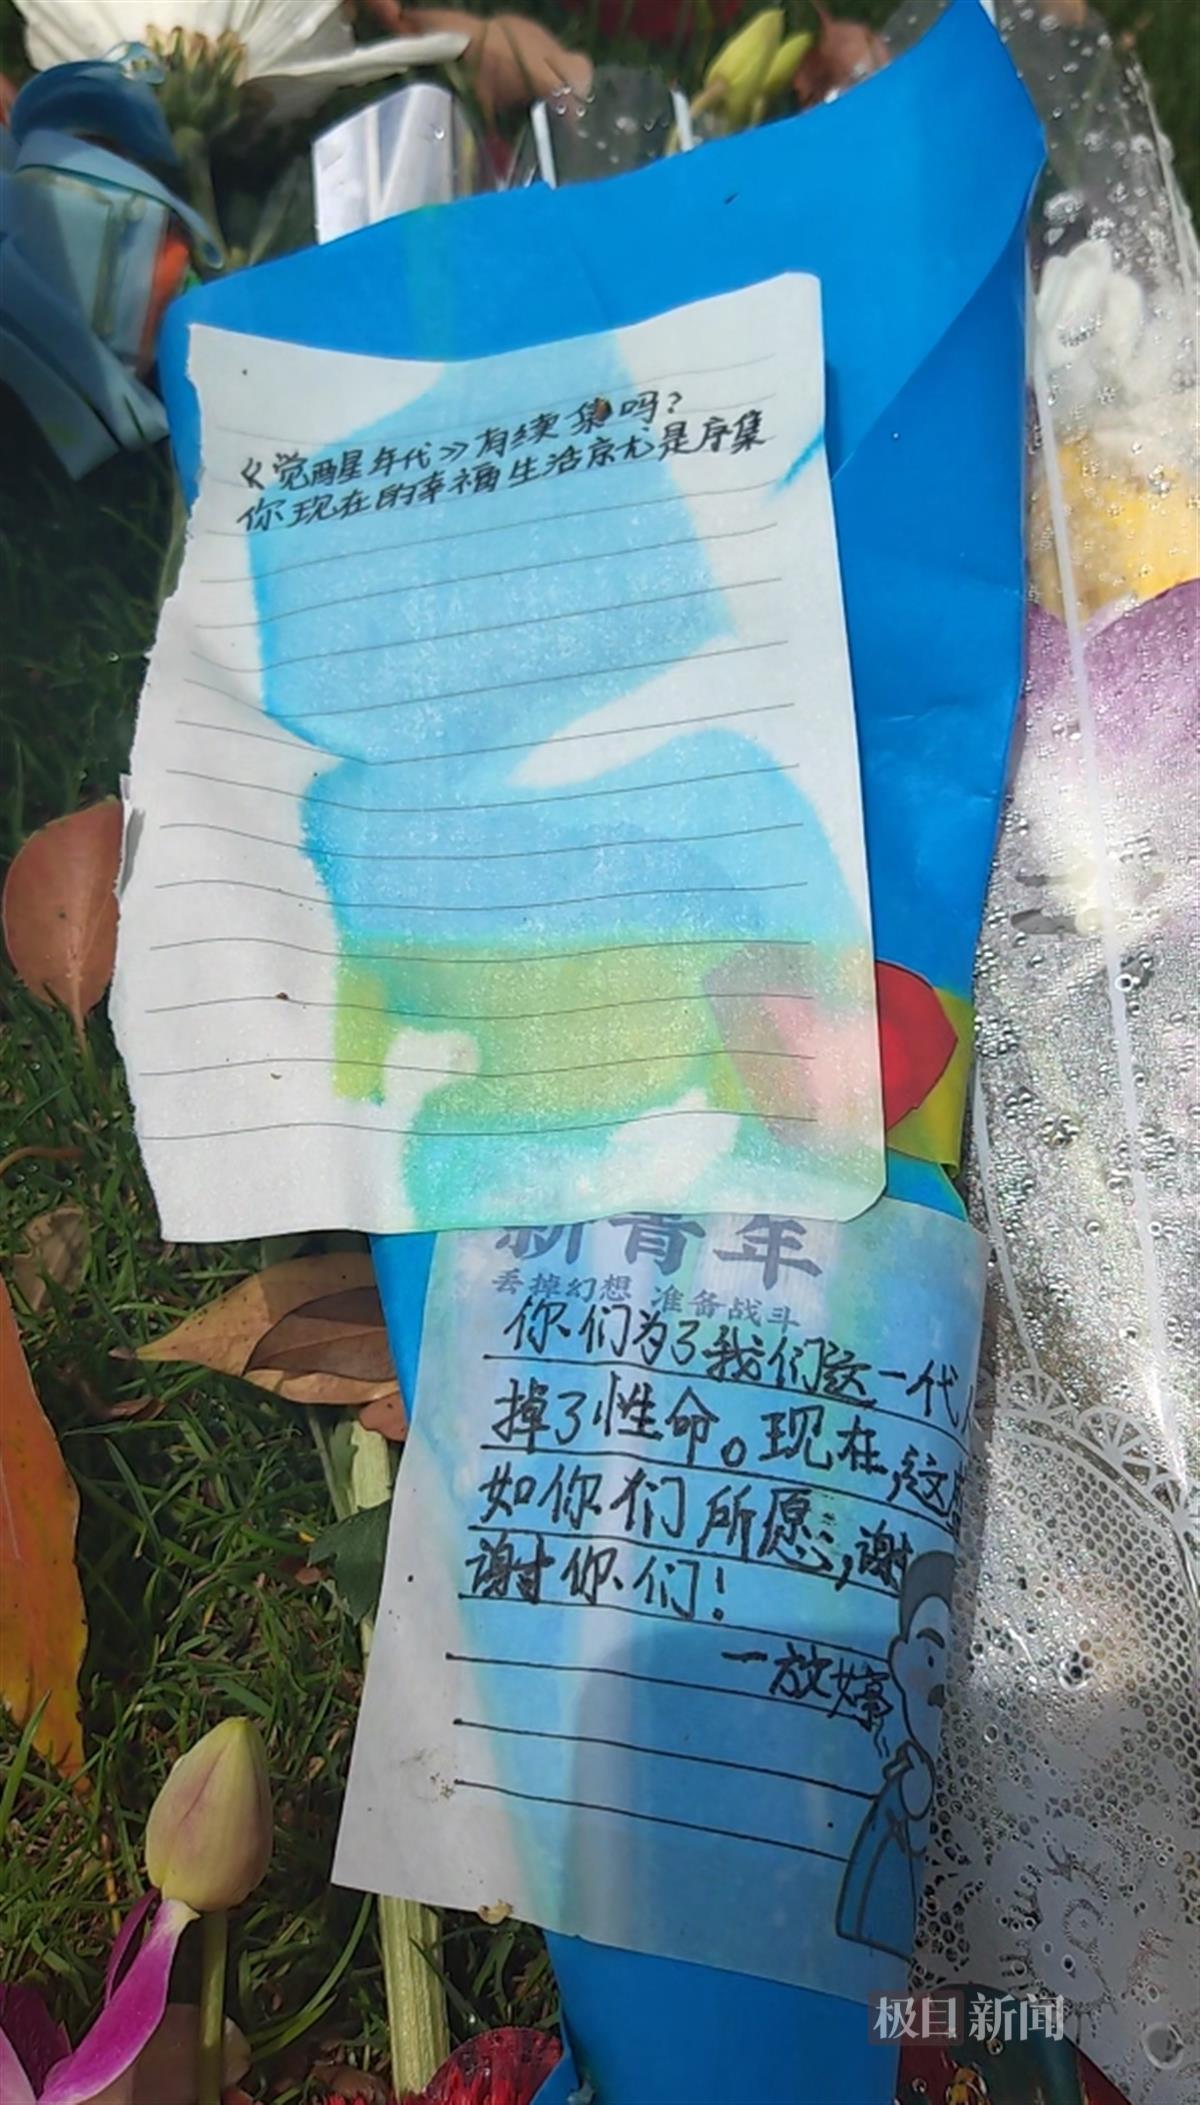 《觉醒年代》有续集吗?
你现在的幸福生活京尤是序集
新青年
丢掉幻想 准备战斗
你们为了我们这一代
掉了性命。现在,这
如你们所愿,谢
谢你们!
一放婷
极目新闻